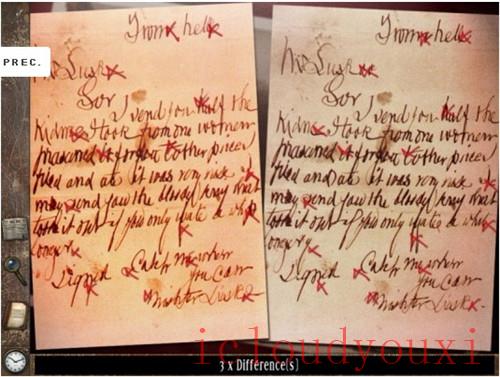 From hell
PREC.
Mr Lusk
Sor
I send you half the
Kidne I took from one women
prasarved it for you tother piece I
fried and ate it was very nise I
may send you the bloody knif that
took it out if you only wate a whil
longer
Signed
Catch me when
you can
Mishter Lusk
From hell
Mr Lusk
Sor
I send you half the
Kidne I took from one women
prasarved it for you tother piece I
fried and ate it was very nise I
may send you the bloody knif that
took it out if you only wate a whil
longer
Signed
Catch me when
you can
Mishter Lusk
icloudyouxi
3 x Difference(s)